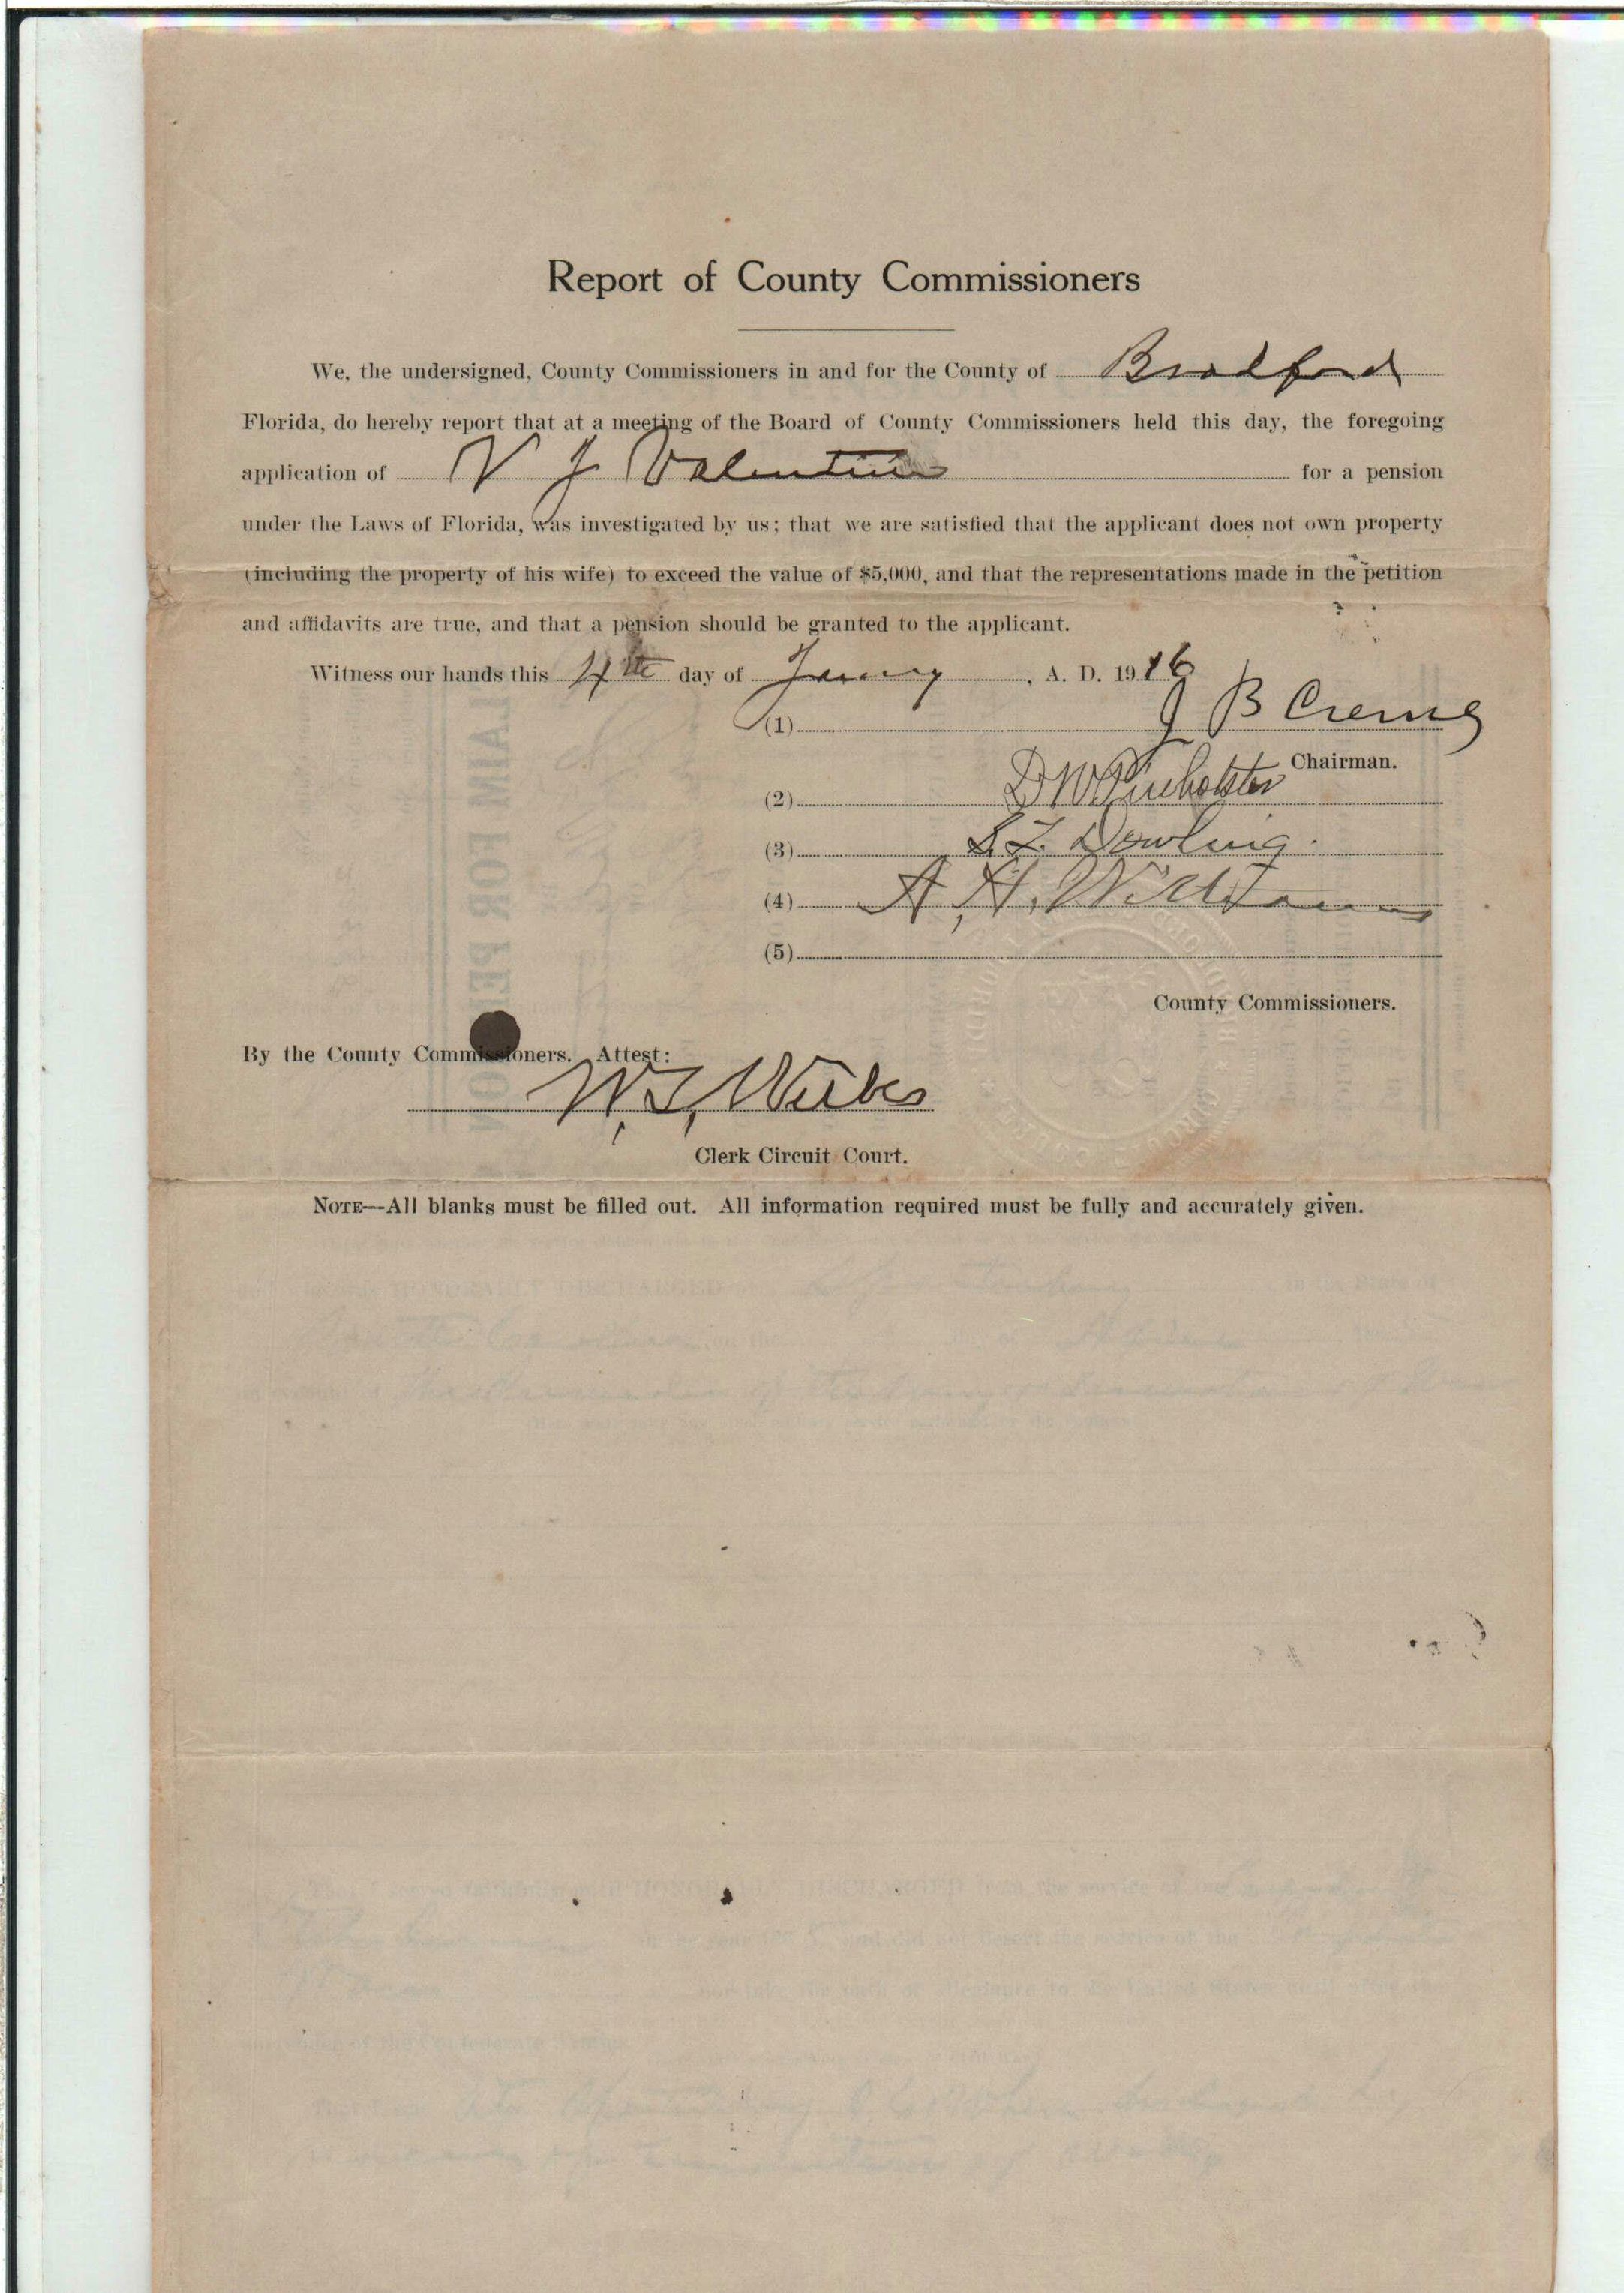 Report of County Commissioners
We, the undersigned, County Commissioners in and for the County of Bradford
Florida, do hereby report that at a meeting of the Board of County Commissioners held this day, the foregoing
application of V J Valentine for a pension
under the Laws of Florida, was investigated by us; that we are satisfied that the applicant does not own property
(including the property of his wife) to exceed the value of $5,000, and that the representations made in the petition
and affidavits are true, and that a pension should be granted to the applicant.
Witness our hands this 4th day of , A. D. 1916
(1) J B Crews
Chairman.
(2) D W Pinholster
(3) S. Z. Dowling.
(4) A, H, Williams
(5)
County Commissioners.
By the County Commissioners. Attest:
W. Wilkes
Clerk Circuit Court.
NOTE—All blanks must be filled out. All information required must be fully and accurately given.